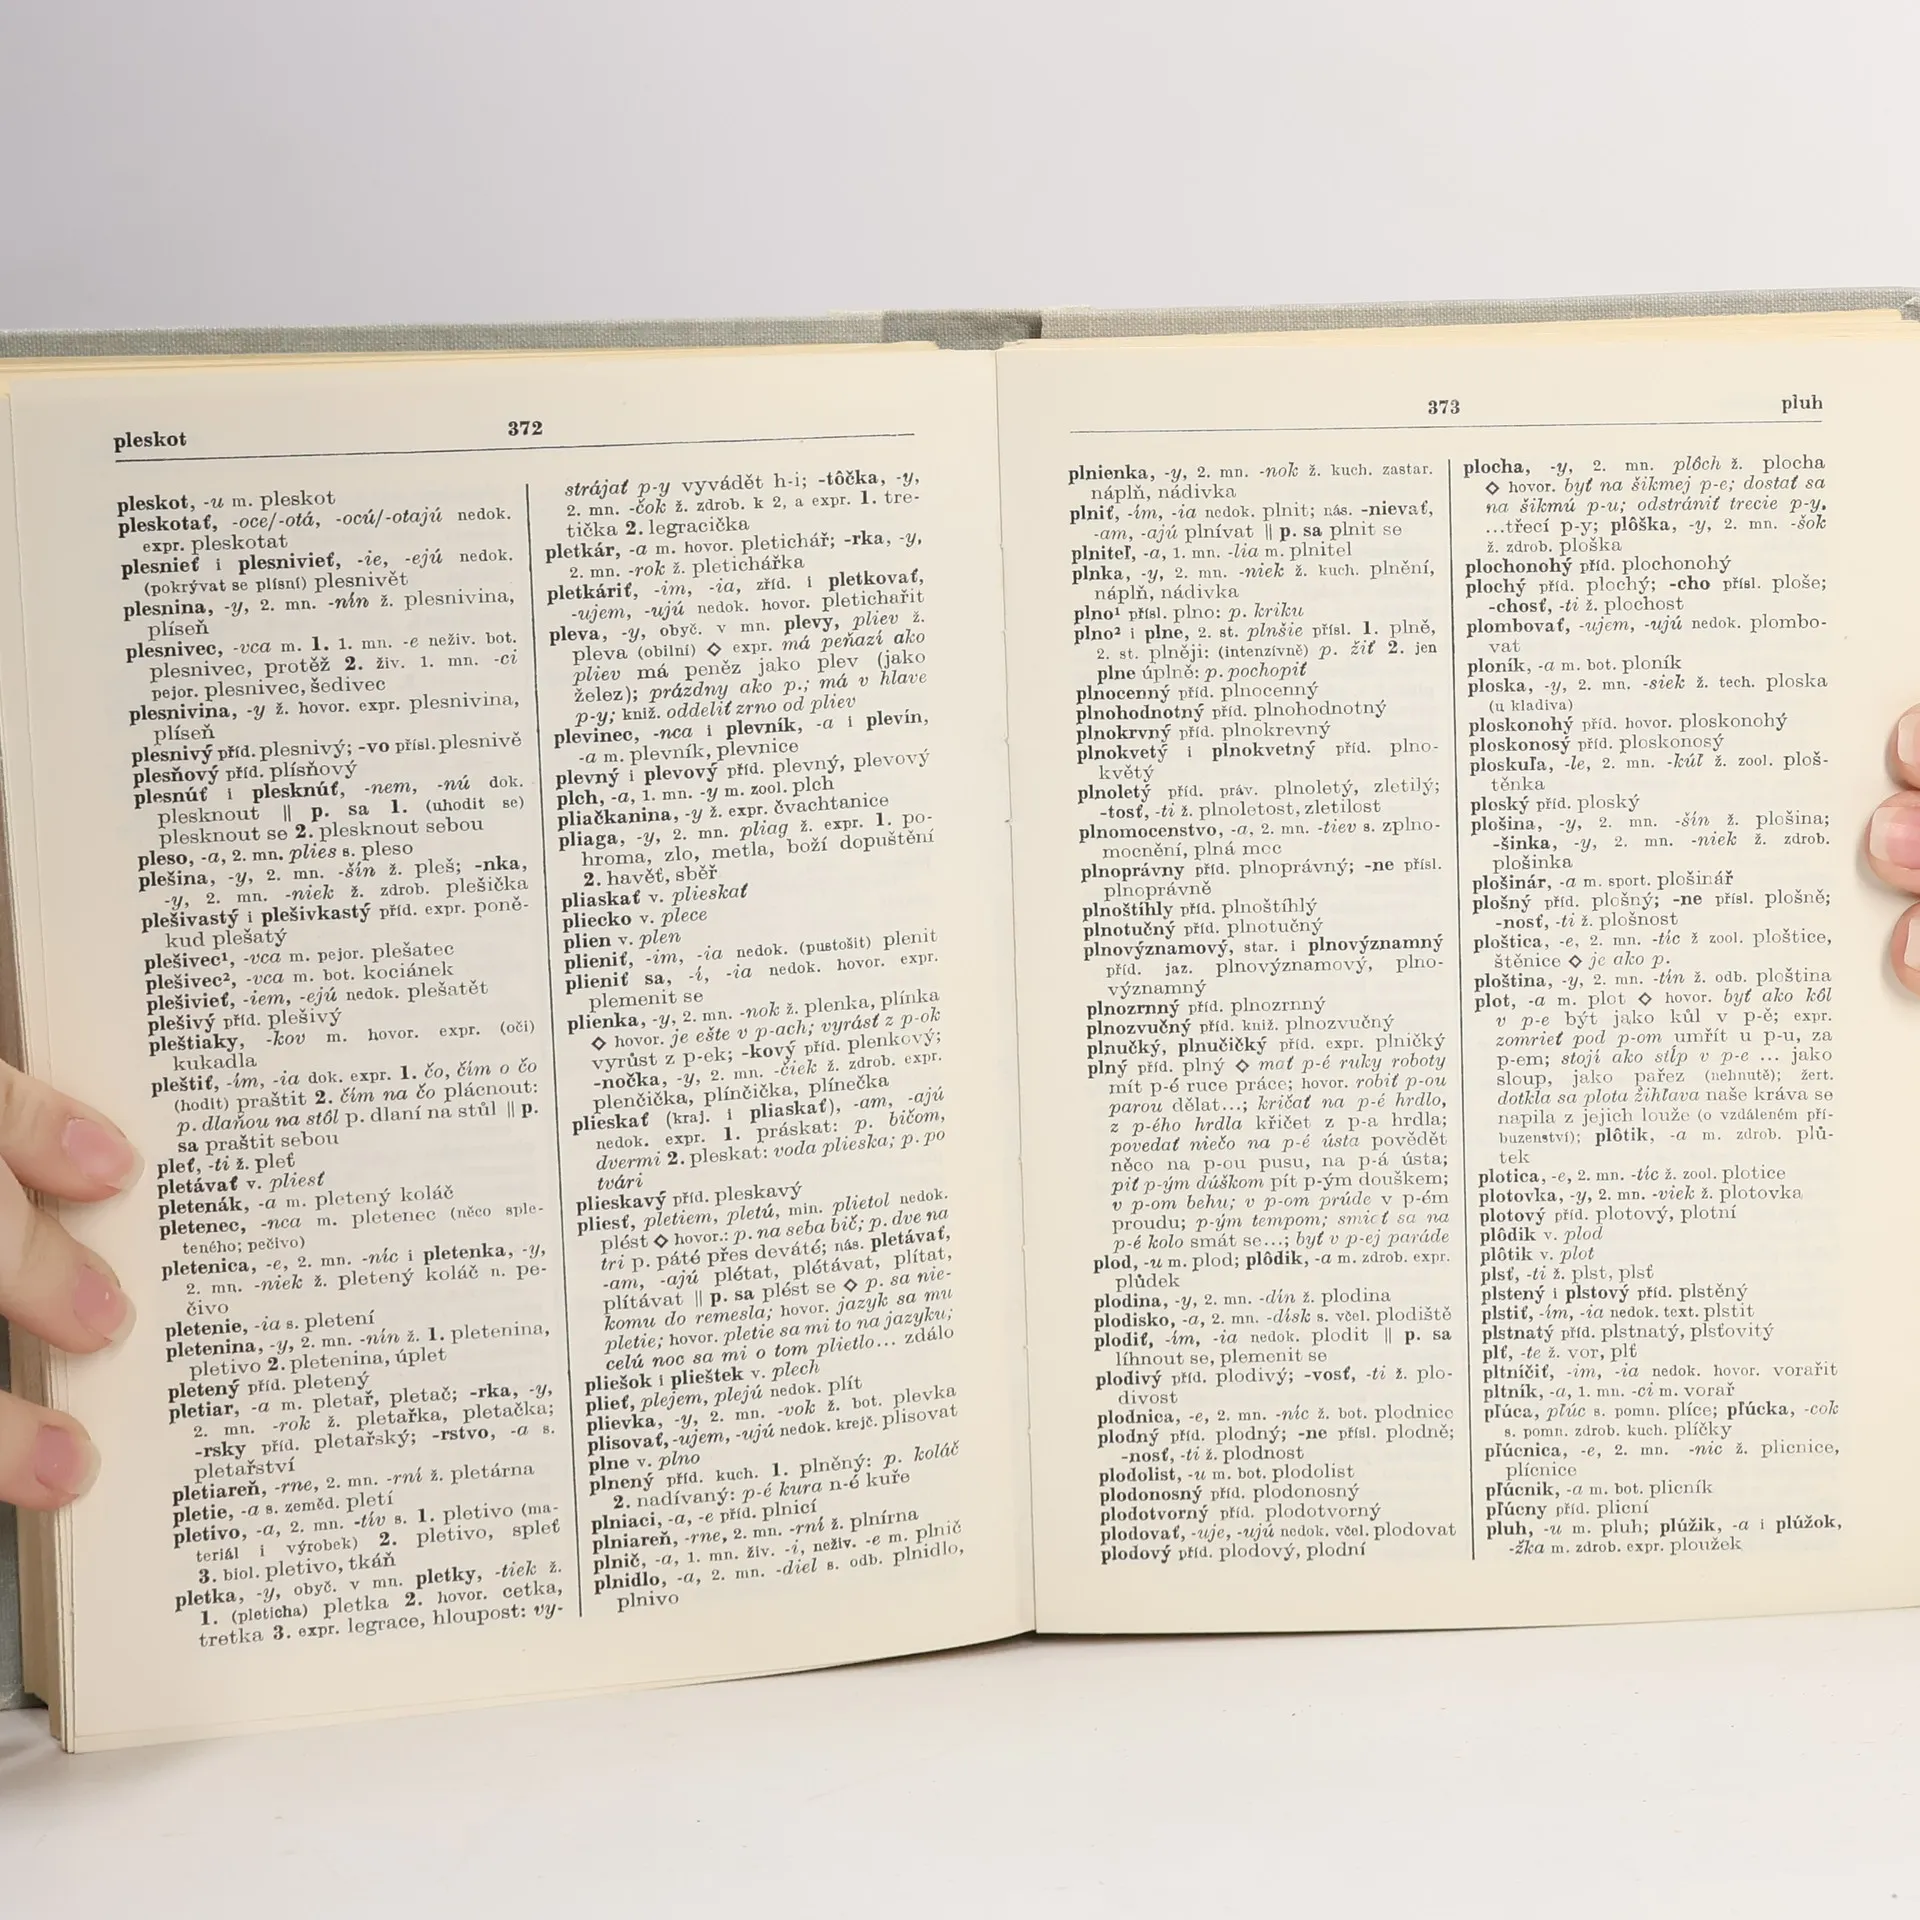 pleskot 372
pleskot, -u m. pleskot
pleskotať, -oce/-otá, -ocú/-otajú nedok.
expr. pleskotat
plesnieť i plesnivieť, -ie, -ejú nedok.
(pokrývat se plísní) plesnivět
plesnina, -y, 2. mn. -nín ž. plesnivina,
plíseň
plesnivec, -vca m. 1. 1. mn. -e neživ. bot.
plesnivec, protěž 2. živ. 1. mn. -ci
pejor. plesnivec, šedivec
plesnivina, -y ž. hovor. expr. plesnivina,
plíseň
plesnivý příd. plesnivý; -vo přísl. plesnivě
plesňový příd. plísňový
plesnúť i plesknúť, -nem, -nú dok.
plesknout || p. sa 1. (uhodit se)
plesknout se 2. plesknout sebou
pleso, -a, 2. mn. plies s. pleso
plešina, -y, 2. mn. -šín ž. pleš; -nka,
-y, 2. mn. -niek ž. zdrob. plešička
plešivastý i plešivkastý příd. expr. poně-
kud plešatý
plešivec¹, -vca m. pejor. plešatec
plešivec², -vca m. bot. kociánek
plešivieť, -iem, -ejú nedok. plešatět
plešivý příd. plešivý
pleštiaky, -kov m. hovor. expr. (oči)
kukadla
pleštiť, -ím, -ia dok. expr. 1. čo, čím o čo
(hodit) praštit 2. čím na čo plácnout:
p. dlaňou na stôl p. dlaní na stůl || p.
sa praštit sebou
pleť, -ti ž. pleť
pletávať v. pliesť
pletenák, -a m. pletený koláč
pletenec, -nca m. pletenec (něco sple-
teného; pečivo)
pletenica, -e, 2. mn. -níc i pletenka, -y,
2. mn. -niek ž. pletený koláč n. pe-
čivo
pletenie, -ia s. pletení
pletenina, -y, 2. mn. -nín ž. 1. pletenina,
pletivo 2. pletenina, úplet
pletený příd. pletený
pletiar, -a m. pletař, pletač; -rka, -y,
2. mn. -rok ž. pletařka, pletačka;
-rsky příd. pletařský; -rstvo, -a s.
pletařství
pletiareň, -rne, 2. mn. -rní ž. pletárna
pletie, -a s. zeměd. pletí
pletivo, -a, 2. mn. -tív s. 1. pletivo (ma-
teriál i výrobek) 2. pletivo, spleť
3. biol. pletivo, tkáň
pletka, -y, obyč. v mn. pletky, -tiek ž.
1. (pleticha) pletka 2. hovor. cetka,
tretka 3. expr. legrace, hloupost: vy-
strájať p-y vyvádět h-i; -tôčka, -y,
2. mn. -čok ž. zdrob. k 2, a expr. 1. tre-
tička 2. legracička
pletkár, -a m. hovor. pletichář; -rka, -y,
2. mn. -rok ž. pletichářka
pletkáriť, -im, -ia, zříd. i pletkovať,
-ujem, -ujú nedok. hovor. pletichařit
pleva, -y, obyč. v mn. plevy, pliev ž.
pleva (obilní) ◇ expr. má peňazí ako
pliev má peněz jako plev (jako
želez); prázdny ako p.; má v hlave
p-y; kniž. oddeliť zrno od pliev
plevinec, -nca i plevník, -a i plevín,
-a m. plevník, plevnice
plevný i plevový příd. plevný, plevový
plch, -a, 1. mn. -y m. zool. plch
pliačkanina, -y ž. expr. čvachtanice
pliaga, -y, 2. mn. pliag ž. expr. 1. po-
hroma, zlo, metla, boží dopuštění
2. havěť, sběř
pliaskať v. plieskať
pliecko v. plece
plien v. plen
plieniť, -im, -ia nedok. (pustošit) plenit
plieniť sa, -i, -ia nedok. hovor. expr.
plemenit se
plienka, -y, 2. mn. -nok ž. plenka, plínka
◇ hovor. je ešte v p-ach; vyrásť z p-ok
vyrůst z p-ek; -kový příd. plenkový;
-nočka, -y, 2. mn. -čiek ž. zdrob. expr.
plenčička, plínčička, plínečka
plieskať (kraj. i pliaskať), -am, -ajú
nedok. expr. 1. práskat: p. bičom,
dvermi 2. pleskat: voda plieska; p. po
tvári
plieskavý příd. pleskavý
pliesť, pletiem, pletú, min. plietol nedok.
plést ◇ hovor.: p. na seba bič; p. dve na
tri p. páté přes deváté; nás. pletávať,
-am, -ajú plétat, plétávat, plítat,
plítávat || p. sa plést se ◇ p. sa nie-
komu do remesla; hovor. jazyk sa mu
pletie; hovor. pletie sa mi to na jazyku;
celú noc sa mi o tom plietlo... zdálo
pliešok i plieštek v. plech
plieť, plejem, plejú nedok. plít
plievka, -y, 2. mn. -vok ž. bot. plevka
plisovať, -ujem, -ujú nedok. krejč. plisovat
plne v. plno
plnený příd. kuch. 1. plněný: p. koláč
2. nadívaný: p-é kura n-é kuře
plniaci, -a, -e příd. plnicí
plniareň, -rne, 2. mn. -rní ž. plnírna
plnič, -a, 1. mn. živ. -i, neživ. -e m. plnič
plnidlo, -a, 2. mn. -diel s. odb. plnidlo,
plnivo
373 pluh
plnienka, -y, 2. mn. -nok ž. kuch. zastar.
náplň, nádivka
plniť, -ím, -ia nedok. plnit; nás. -nievať,
-am, -ajú plnívat || p. sa plnit se
plniteľ, -a, 1. mn. -lia m. plnitel
plnka, -y, 2. mn. -niek ž. kuch. plnění,
náplň, nádivka
plno¹ přísl. plno: p. kriku
plno² i plne, 2. st. plnšie přísl. 1. plně,
2. st. plněji: (intenzívně) p. žiť 2. jen
plne úplně: p. pochopiť
plnocenný příd. plnocenný
plnohodnotný příd. plnohodnotný
plnokrvný příd. plnokrevný
plnokvetý i plnokvetný příd. plno-
květý
plnoletý příd. práv. plnoletý, zletilý;
-tosť, -ti ž. plnoletost, zletilost
plnomocenstvo, -a, 2. mn. -tiev s. zplno-
mocnění, plná moc
plnoprávny příd. plnoprávný; -ne přísl.
plnoprávně
plnoštíhly příd. plnoštíhlý
plnotučný příd. plnotučný
plnovýznamový, star. i plnovýznamný
příd. jaz. plnovýznamový, plno-
významný
plnozrnný příd. plnozrnný
plnozvučný příd. kniž. plnozvučný
plnučký, plnučičký příd. expr. plničký
plný příd. plný ◇ mať p-é ruky roboty
mít p-é ruce práce; hovor. robiť p-ou
parou dělat...; kričať na p-é hrdlo,
z p-ého hrdla křičet z p-a hrdla;
povedať niečo na p-é ústa povědět
něco na p-ou pusu, na p-á ústa;
piť p-ým dúškom pít p-ým douškem;
v p-om behu; v p-om prúde v p-ém
proudu; p-ým tempom; smiať sa na
p-é kolo smát se...; byť v p-ej paráde
plod, -u m. plod; plôdik, -a m. zdrob. expr.
plůdek
plodina, -y, 2. mn. -dín ž. plodina
plodisko, -a, 2. mn. -dísk s. včel. plodiště
plodiť, -ím, -ia nedok. plodit || p. sa
líhnout se, plemenit se
plodivý příd. plodivý; -vosť, -ti ž. plo-
divost
plodnica, -e, 2. mn. -níc ž. bot. plodnice
plodný příd. plodný; -ne přísl. plodně;
-nosť, -ti ž. plodnost
plodolist, -u m. bot. plodolist
plodonosný příd. plodonosný
plodotvorný příd. plodotvorný
plodovať, -uje, -ujú nedok. včel. plodovat
plodový příd. plodový, plodní
plocha, -y, 2. mn. plôch ž. plocha
◇ hovor. byť na šikmej p-e; dostať sa
na šikmú p-u; odstrániť trecie p-y,
...třecí p-y; plôška, -y, 2. mn. -šok
ž. zdrob. ploška
plochonohý příd. plochonohý
plochý příd. plochý; -cho přísl. ploše;
-chosť, -ti ž. plochost
plombovať, -ujem, -ujú nedok. plombo-
vat
ploník, -a m. bot. ploník
ploska, -y, 2. mn. -siek ž. tech. ploska
(u kladiva)
ploskonohý příd. hovor. ploskonohý
ploskonosý příd. ploskonosý
ploskuľa, -le, 2. mn. -kúľ ž. zool. ploš-
těnka
ploský příd. ploský
plošina, -y, 2. mn. -šín ž. plošina;
-šinka, -y, 2. mn. -niek ž. zdrob.
plošinka
plošinár, -a m. sport. plošinář
plošný příd. plošný; -ne přísl. plošně;
-nosť, -ti ž. plošnost
ploštica, -e, 2. mn. -tíc ž zool. ploštice,
štěnice ◇ je ako p.
ploština, -y, 2. mn. -tín ž. odb. ploština
plot, -a m. plot ◇ hovor. byť ako kôl
v p-e být jako kůl v p-ě; expr.
zomrieť pod p-om umřít u p-u, za
p-em; stojí ako stĺp v p-e ... jako
sloup, jako pařez (nehnutě); žert.
dotkla sa plota žihľava naše kráva se
napila z jejich louže (o vzdáleném pří-
buzenství); plôtik, -a m. zdrob. plů-
tek
plotica, -e, 2. mn. -tíc ž. zool. plotice
plotovka, -y, 2. mn. -viek ž. plotovka
plotový příd. plotový, plotní
plôdik v. plod
plôtik v. plot
plsť, -ti ž. plst, plsť
plstený i plstový příd. plstěný
plstiť, -ím, -ia nedok. text. plstit
plstnatý příd. plstnatý, plsťovitý
plť, -te ž. vor, plť
pltníčiť, -im, -ia nedok. hovor. vorařit
pltník, -a, 1. mn. -ci m. vorař
pľúca, pľúc s. pomn. plíce; pľúcka, -cok
s. pomn. zdrob. kuch. plíčky
pľúcnica, -e, 2. mn. -nic ž. plicnice,
plícnice
pľúcnik, -a m. bot. plicník
pľúcny příd. plicní
pluh, -u m. pluh; plúžik, -a i plúžok,
-žka m. zdrob. expr. ploužek